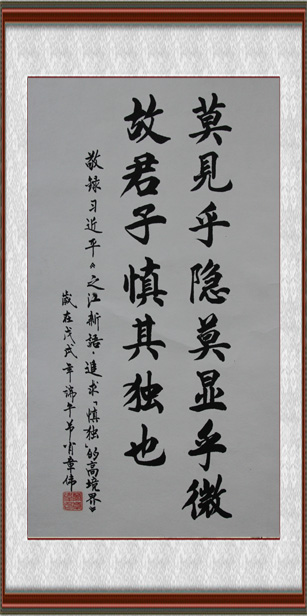 莫见乎隐莫显乎微
故君子慎其独也
敬録习近平《之江新語·追求「慎独」的高境界》
歲在戊戌年端午节肖章伟